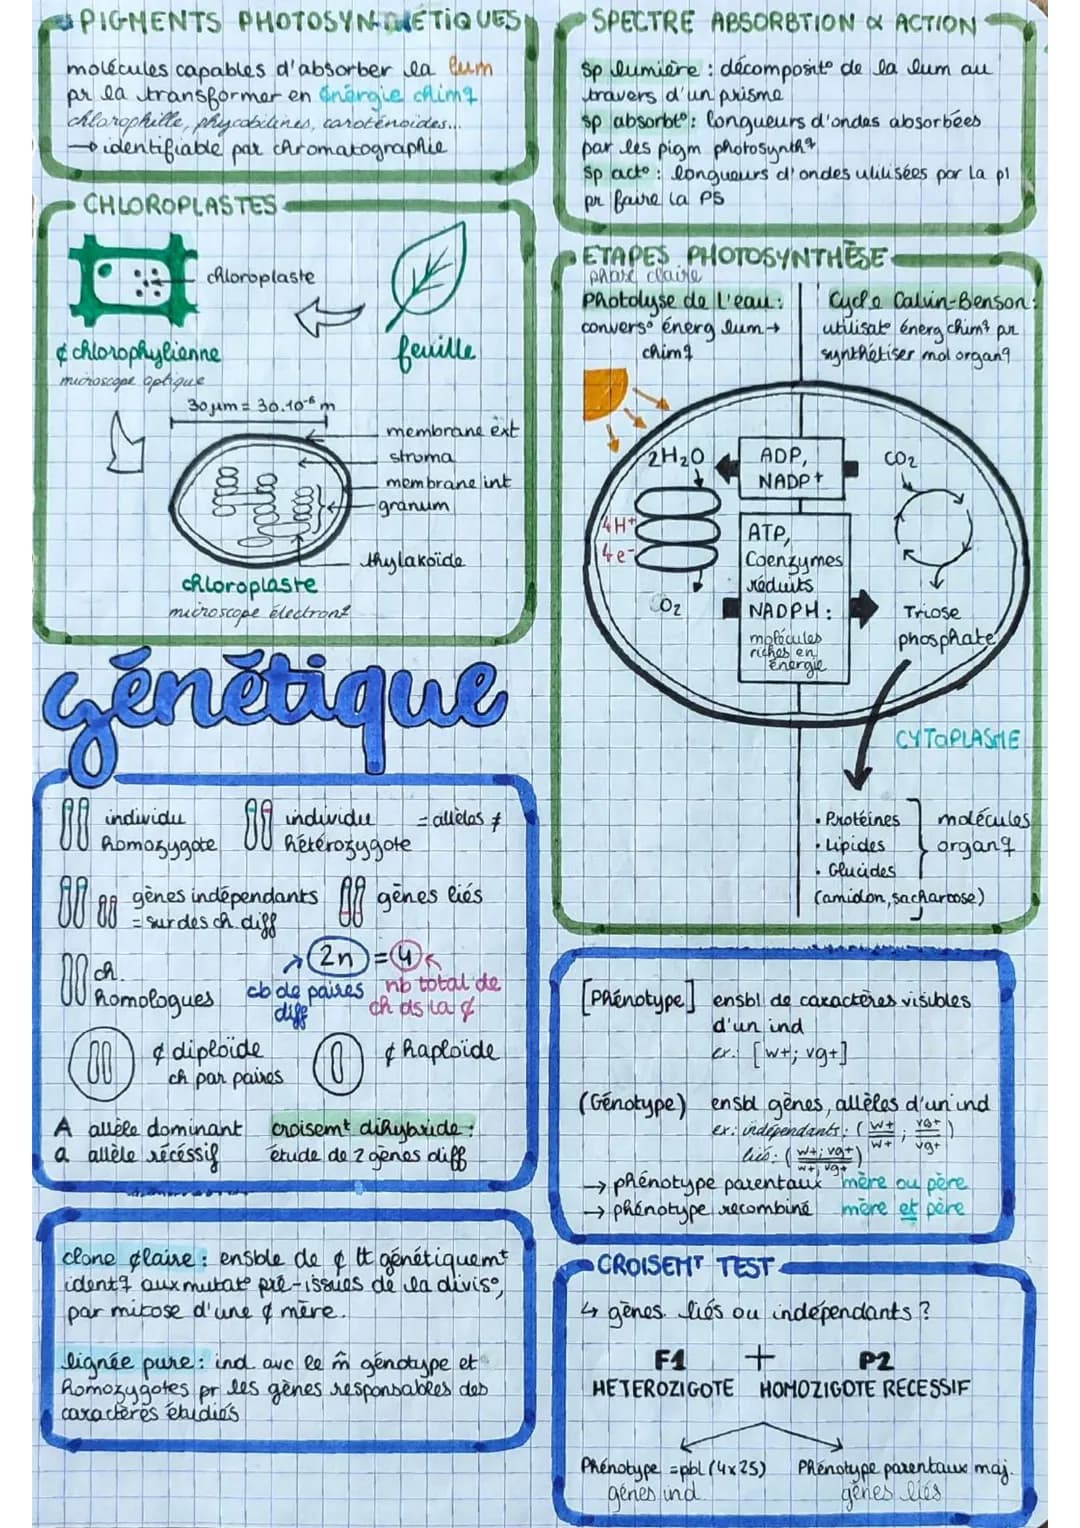 PIGMENTS PHOTOSYNTHÉTIQUES
molécules capables d'absorber la lum
pr la transformer en énergie chimq
chlorophille, phycobilines, caroténoides...
→ identifiable par chromatographie
CHLOROPLASTES
chloroplaste
feuille
¢ chlorophylienne
microscope optique
30 µm = 30.10⁻⁶ m
membrane ext
stroma
membrane int
granum
thylakoïde
chloroplaste
microscope électronq
SPECTRE ABSORBTION & ACTION
Sp lumière : décomposit° de la lum au
travers d'un prisme
Sp absorbt° : longueurs d'ondes absorbées
par les pigm photosynthq
Sp act° : longueurs d'ondes utilisées par la pl
pr faire la PS
ETAPES PHOTOSYNTHÈSE
phase claire
Photolyse de l'eau :
convers° énerg lum →
chimq
Cycle Calvin-Benson :
utilisat° énerg chimq pr
synthétiser mol organq
2H₂O
ADP,
NADP+
CO₂
4H+
4e-
ATP,
Coenzymes
réduits
NADPH :
molécules
riches en
énergie
O₂
Triose
phosphate
CYTOPLASME
• Protéines
• Lipides
• Glucides
(amidon, saccharose)
molécules
organq
génétique
individu
homozygote
individu
hétérozygote
= allèles ≠
gènes indépendants
= sur des ch. diff
gènes liés
ch.
homologues
2n = 4
cb de paires
diff
nb total de
ch ds la ¢
¢ diploïde
ch par paires
¢ haploïde
A allèle dominant
a allèle récéssif
croisemt dihybride :
étude de 2 gènes diff
clone ¢laire : ensble de ¢ tt génétiquemt
identq aux mutat° pré-issues de la divis°,
par mitose d'une ¢ mère.
lignée pure : ind avc le m̂ génotype et
homozygotes pr les gènes responsables des
caractères étudiés
[Phénotype] ensbl de caractères visibles
d'un ind
ex : [w+; vg+]
(Génotype) ensbl gènes, allèles d'un ind
ex : indépendants : (w+/w+ ; vg+/vg+)
liés : (w+; vg+/w+; vg+)
→ phénotype parentaux mère ou père
→ phénotype recombiné mère et père
CROISEMT TEST
↳ gènes liés ou indépendants ?
F1 + P2
HETEROZIGOTE HOMOZIGOTE RECESSIF
Phénotype = pbl (4x25)
gènes ind
Phénotype parentaux maj.
gènes liés